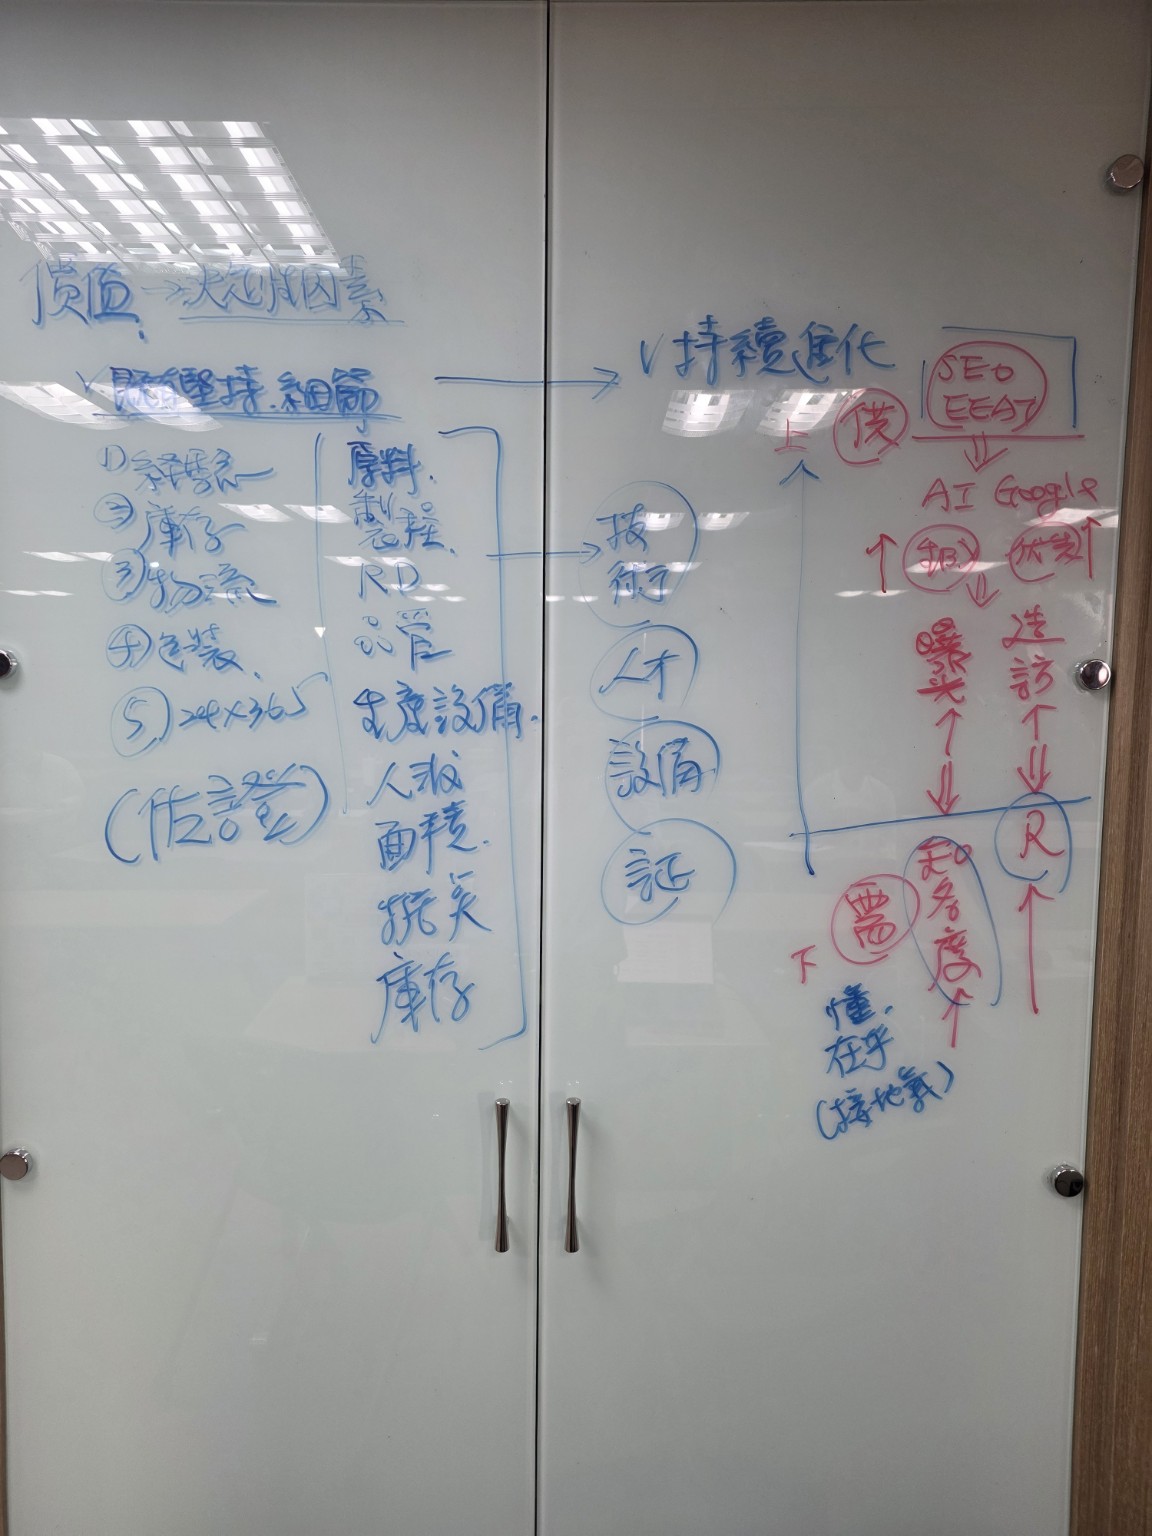 價值 → 決定性因素
✓ 堅持.細節 → ✓ 持續進化
① 
② 庫存
③ 物流
④ 包裝
⑤ 24×365
(佐證)
原料.
製程.
RD
品管
生產設備.
人
面積.
庫存
技術
人才
設備
証
上
供
SEO
EEAT
⇓
AI Google
↑ ↑
⇓
曝光
造訪
↑ ↑
⇓ ⇓
R
知名度
↑ ↑
需
下
懂.
在乎
(接地氣)